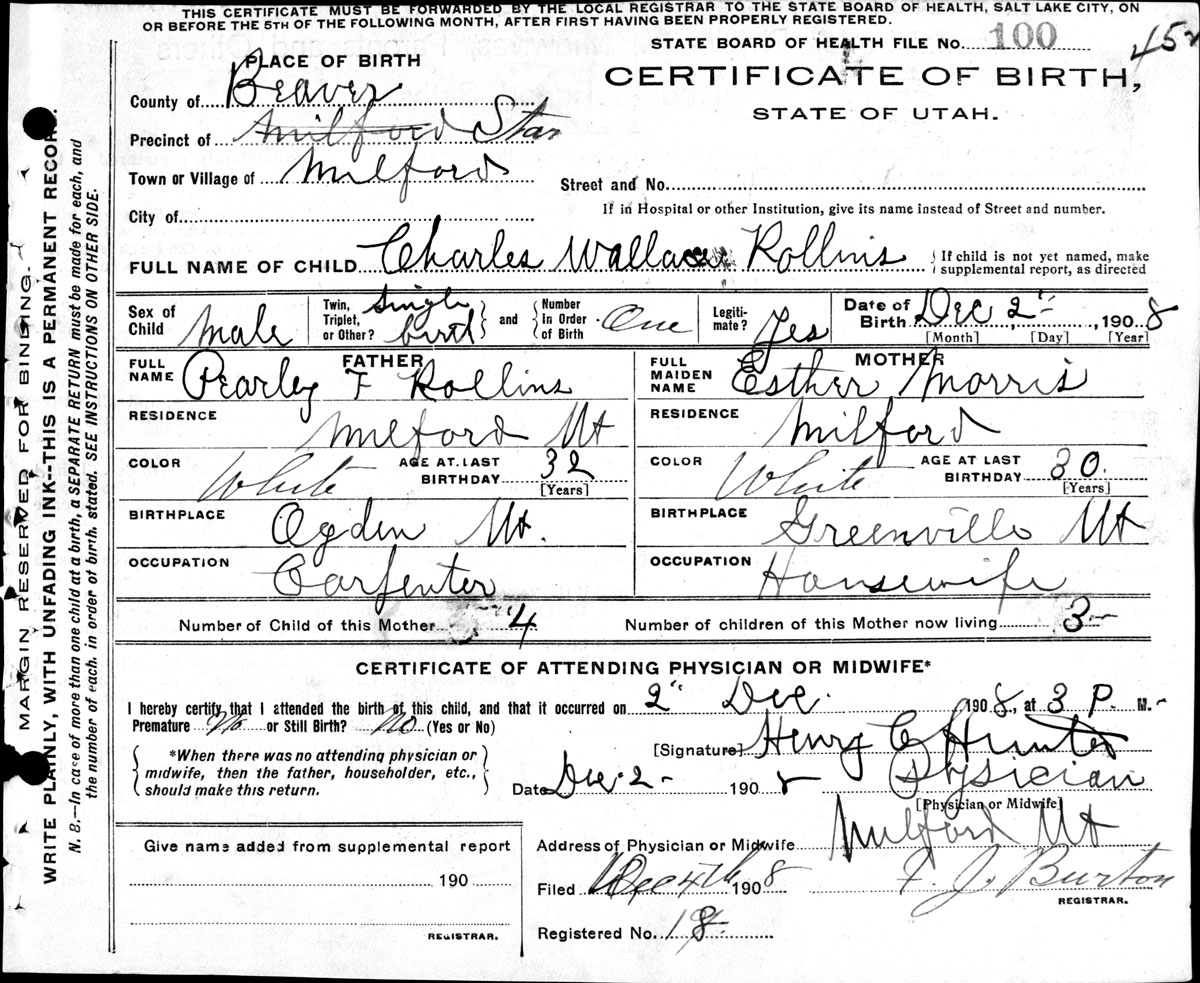 THIS CERTIFICATE MUST BE FORWARDED BY THE LOCAL REGISTRAR TO THE STATE BOARD OF HEALTH, SALT LAKE CITY, ON
OR BEFORE THE 5TH OF THE FOLLOWING MONTH, AFTER FIRST HAVING BEEN PROPERLY REGISTERED.
STATE BOARD OF HEALTH FILE No. 100
PLACE OF BIRTH
CERTIFICATE OF BIRTH,
STATE OF UTAH.
County of Beaver
Precinct of Milford Star
Town or Village of Milford
Street and No.
City of
If in Hospital or other Institution, give its name instead of Street and number.
FULL NAME OF CHILD Charles Wallace Rollins { If child is not yet named, make
supplemental report, as directed
Sex of Child Male
Twin, Triplet, or Other? Single birth } and { Number In Order of Birth One
Legiti-mate? Yes
Date of Birth Dec 2", 1908
[Month] [Day] [Year]
FATHER
FULL NAME Pearley F Rollins
RESIDENCE Milford Ut
COLOR White AGE AT LAST BIRTHDAY 32
[Years]
BIRTHPLACE Ogden Ut.
OCCUPATION Carpenter
MOTHER
FULL MAIDEN NAME Esther Morris
RESIDENCE Milford
COLOR White AGE AT LAST BIRTHDAY 30.
[Years]
BIRTHPLACE Greenville Ut
OCCUPATION Housewife
Number of Child of this Mother 4 Number of children of this Mother now living 3
CERTIFICATE OF ATTENDING PHYSICIAN OR MIDWIFE*
I hereby certify that I attended the birth of this child, and that it occurred on 2" Dec. 1908, at 3 P. M.
Premature No or Still Birth? No (Yes or No)
[Signature] Henry C Hunter
*When there was no attending physician or
midwife, then the father, householder, etc.,
should make this return.
Date Dec. 2 - 1908 Physician
[Physician or Midwife]
Address of Physician or Midwife Milford Ut
Give name added from supplemental report
190
REGISTRAR.
Filed Dec 4th 1908 F. J. Burton
REGISTRAR.
Registered No. 18
MARGIN RESERVED FOR BINDING.
WRITE PLAINLY, WITH UNFADING INK--THIS IS A PERMANENT RECORD.
N. B.—In case of more than one child at a birth, a SEPARATE RETURN must be made for each, and
the number of each, in order of birth, stated. SEE INSTRUCTIONS ON OTHER SIDE.